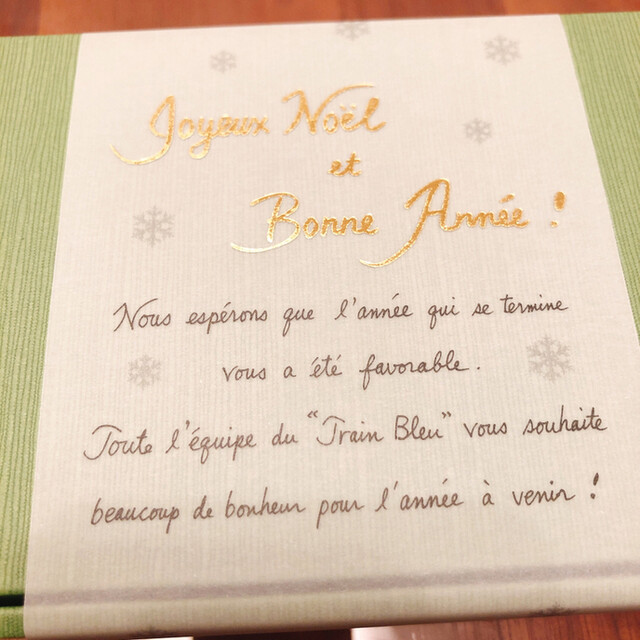 Joyeux Noël
et
Bonne Année !
Nous espérons que l'année qui se termine
vous a été favorable.
Toute l'équipe du "Train Bleu" vous souhaite
beaucoup de bonheur pour l'année à venir !